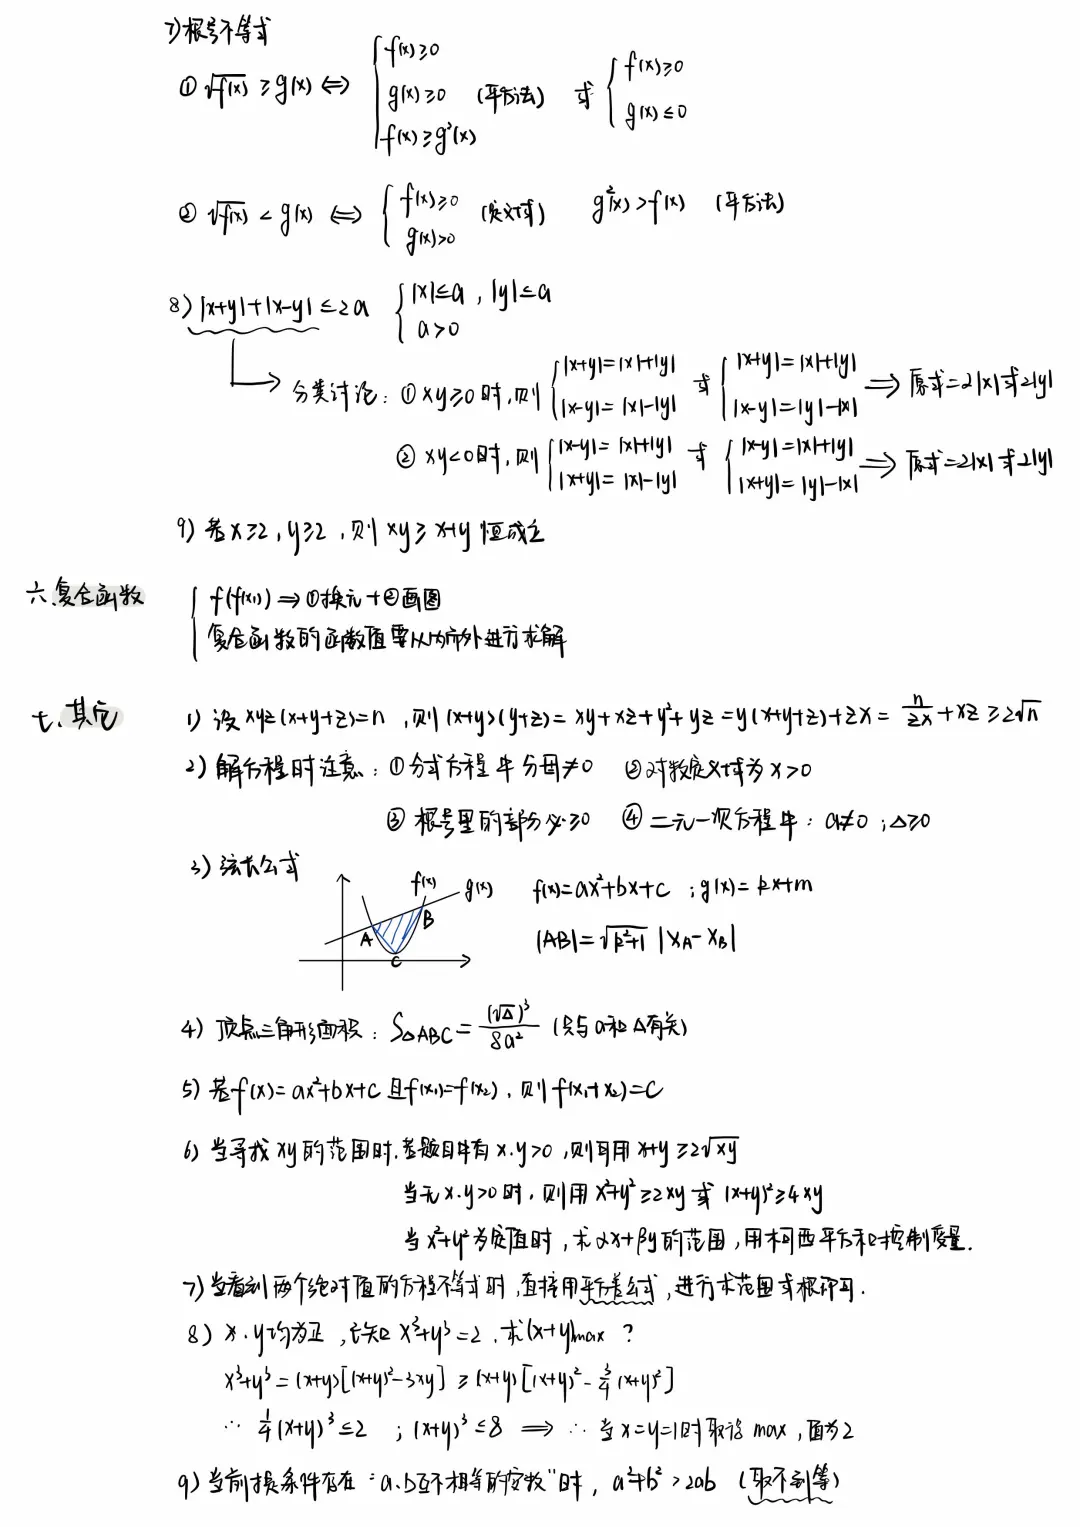 7) 根号不等式
① √f(x) ≥ g(x) ⇔ { f(x)≥0
g(x)≥0 (平方法)
f(x)≥g²(x)
或 { f(x)≥0
g(x)≤0
② √f(x) < g(x) ⇔ { f(x)≥0
g(x)>0
(定义域) g²(x)>f(x) (平方法)
8) |x+y|+|x-y|≤2a { |x|≤a , |y|≤a
a>0
分类讨论: ① xy≥0时,则 { |x+y|=|x|+|y|
|x-y|=|x|-|y|
或 { |x+y|=|x|+|y|
|x-y|=|y|-|x|
⇒ 原式=2|x|或2|y|
② xy<0时,则 { |x-y|=|x|+|y|
|x+y|=|x|-|y|
或 { |x-y|=|x|+|y|
|x+y|=|y|-|x|
⇒ 原式=2|x|或2|y|
9) 若x≥2,y≥2,则xy≥x+y恒成立
六.复合函数 { f(f(x)) ⇒ ①换元+②画图
复合函数的函数值要从内向外进行求解
七.其它 1) 设xyz(x+y+z)=n ,则(x+y)(y+z)=xy+xz+y²+yz=y(x+y+z)+zx=n/zx+xz≥2√n
2) 解方程时注意: ①分式方程中分母≠0 ②对数定义域为x>0
③ 根号里的部分必≥0 ④ 二元一次方程中: a≠0 ;Δ≥0
3) 弦长公式
f(x) g(x)
A B C
f(x)=ax²+bx+c ;g(x)=kx+m
|AB|=√k²+1 |xA-xB|
4) 顶点三角形面积: S△ABC=(√Δ)³/8a² (只与a和Δ有关)
5) 若f(x)=ax²+bx+c且f(x₁)=f(x₂),则f(x₁+x₂)=c
6) 当寻找xy的范围时.若题目中有x.y>0 ,则可用x+y≥2√xy
当无x.y>0时,则用x²+y²≥2xy或(x+y)²≥4xy
当x²+y²为定值时,求αx+βy的范围,用柯西平方和控制变量.
7) 当看到两个绝对值的方程不等式时,直接用平方差公式,进行求范围或根即可.
8) x.y均为正,已知x³+y³=2.求(x+y)max ?
x³+y³=(x+y)[(x+y)²-3xy]≥(x+y)[(x+y)²-3/4(x+y)²]
∴ 1/4(x+y)³≤2 ; (x+y)³≤8 ⇒ ∴ 当x=y=1时取得max,值为2
9) 当前提条件存在"a.b互不相等的实数"时, a²+b²>2ab (取不到等)